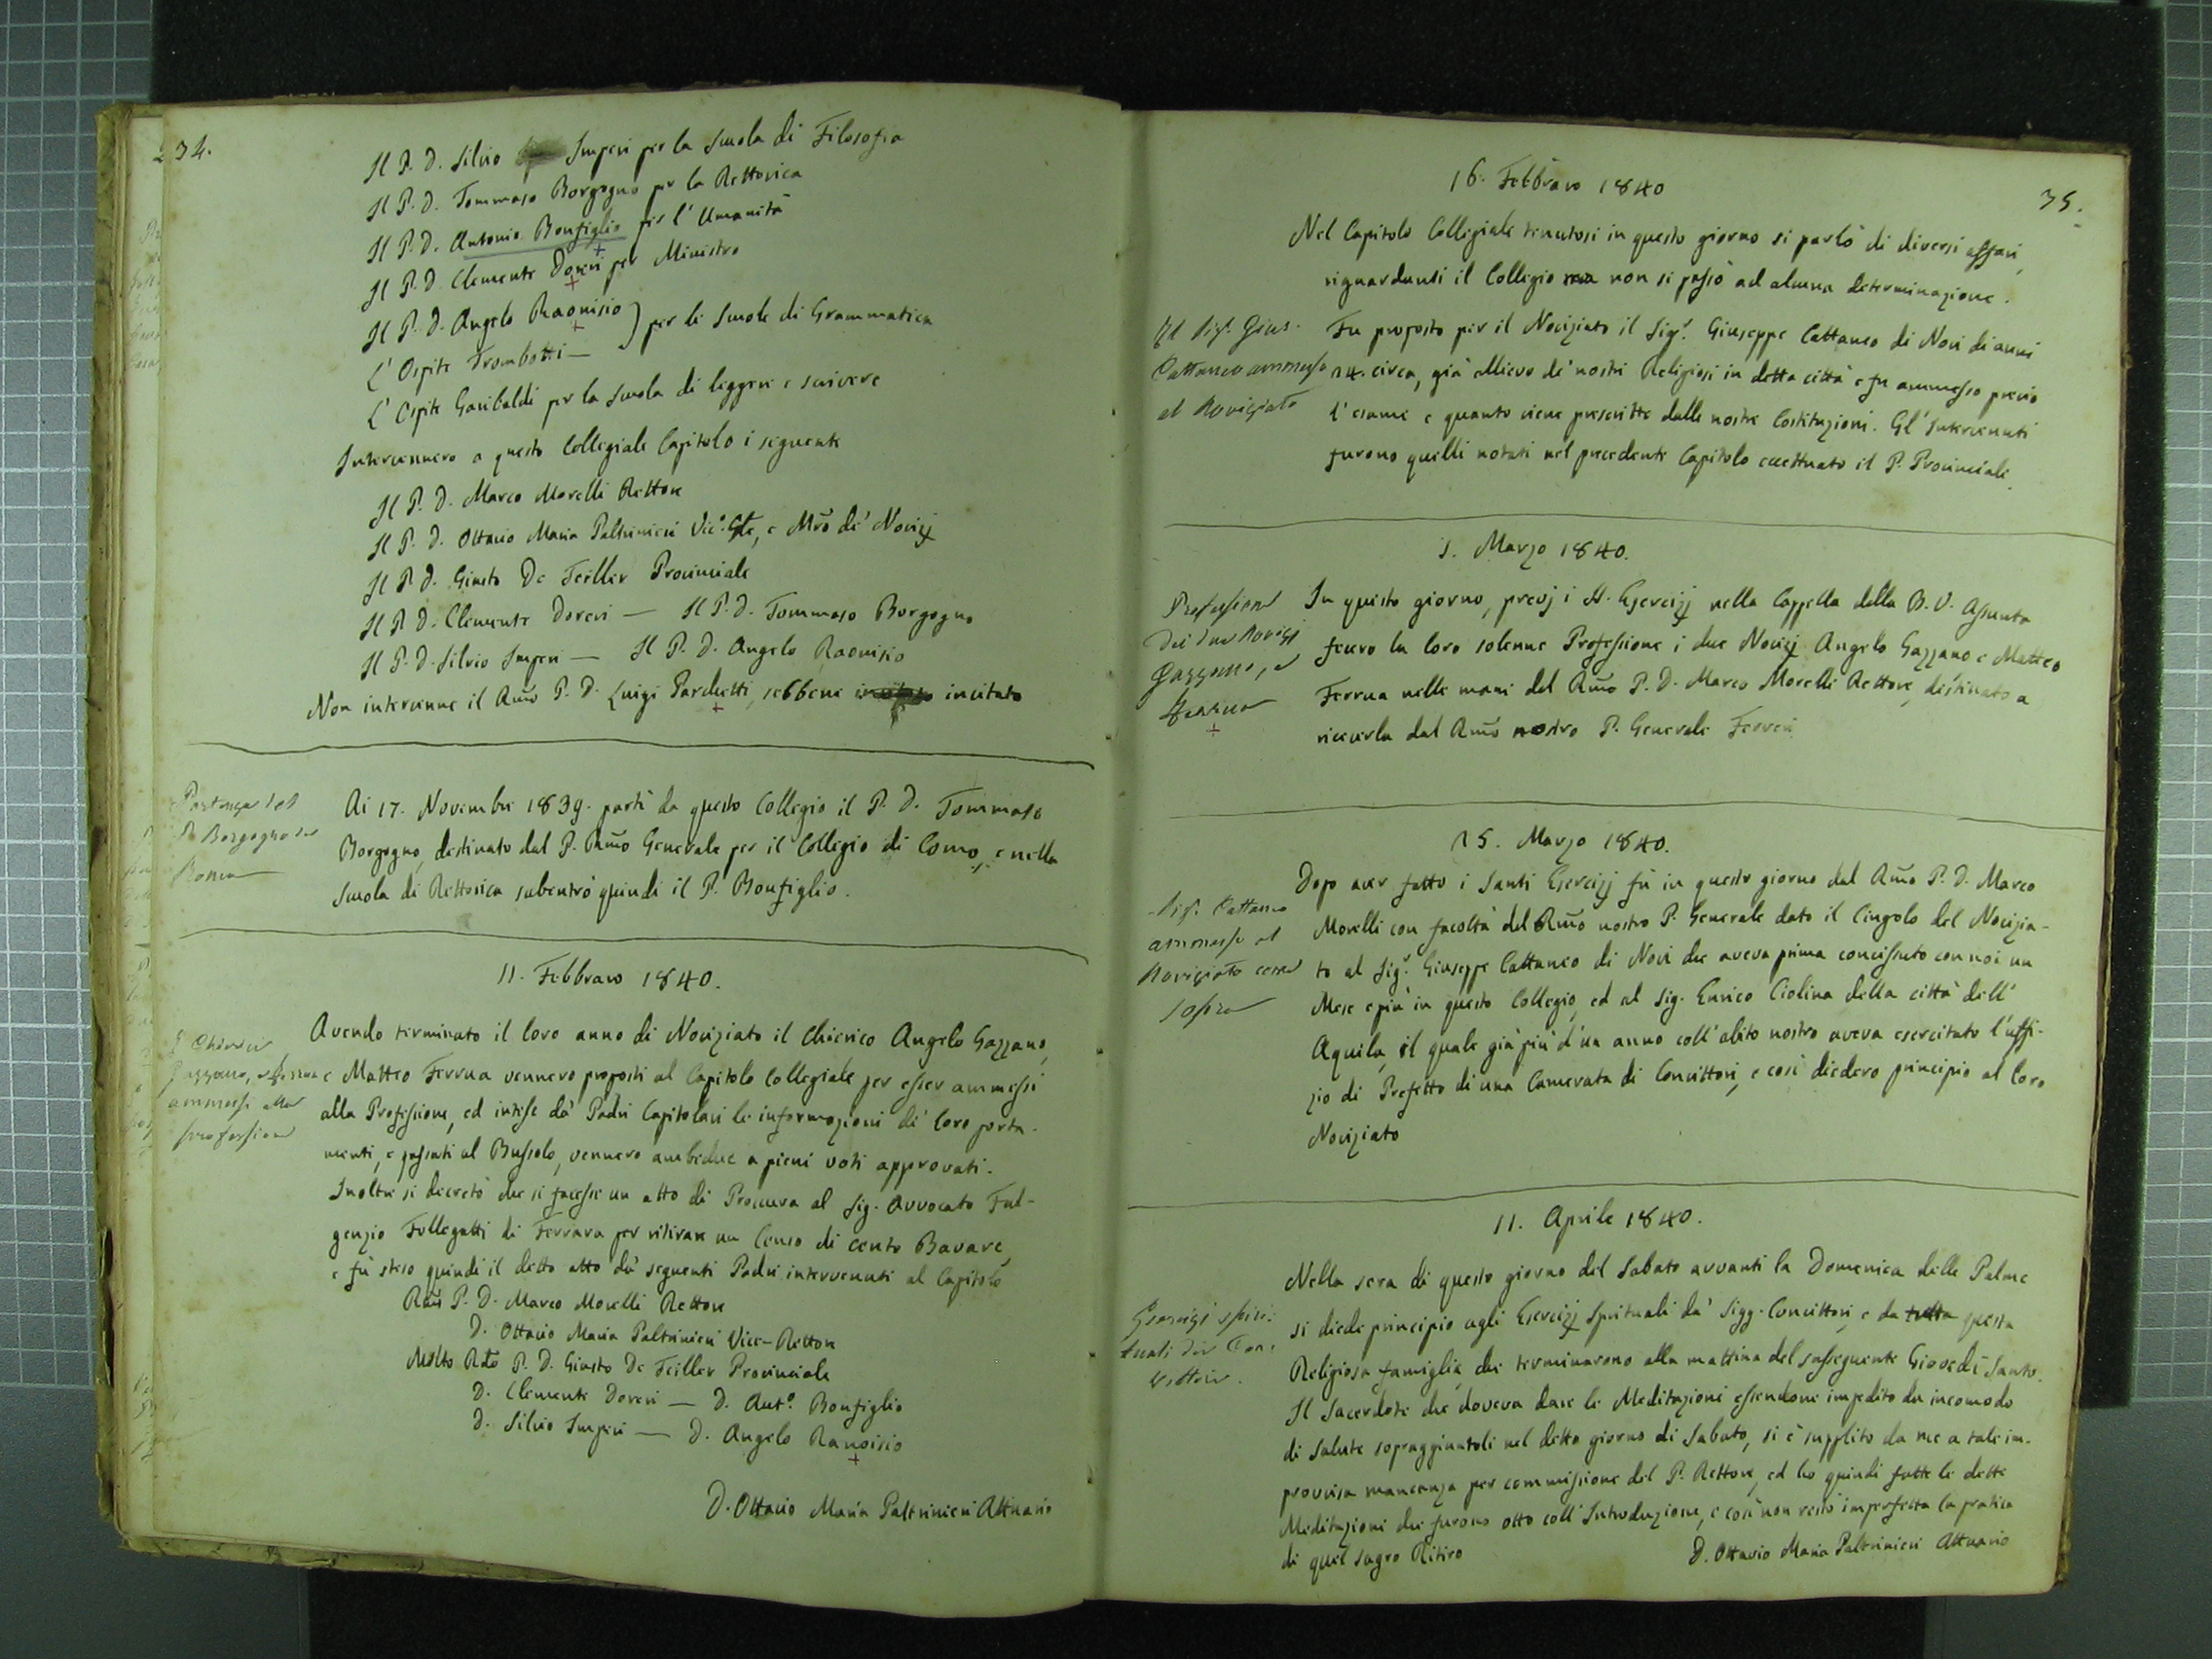 34.
Il P. D. Silvio Imperi per la Scuola di Filosofia
Il P. D. Tommaso Borgogno per la Rettorica
Il P. D. Antonio Bonfiglio per l'Umanità
Il P. D. Clemente Doreri per Ministro
Il P. D. Angelo Raonisio
L'Ospite Trombotti — ) per le Scuole di Grammatica
L'Ospite Garibaldi per la Scuola di leggere e scrivere
Intervennero a questo Collegiale Capitolo i seguenti
Il P. D. Marco Morelli Rettore
Il P. D. Ottavio Maria Paltrinieri Vic. Gle, e Mro de' Novizj
Il P. D. Giusto De Feiller Provinciale
Il P. D. Clemente Doreri — Il P. D. Tommaso Borgogno
Il P. D. Silvio Imperi — Il P. D. Angelo Raonisio
Non intervenne il Rmo P. D. Luigi Parchetti, sebbene invitato
Partenza del
P. Borgogno da
Roma
Ai 17. Novembre 1839. partì da questo Collegio il P. D. Tommaso
Borgogno, destinato dal P. Rmo Generale per il Collegio di Como, e nella
Scuola di Rettorica subentrò quindi il P. Bonfiglio.
11. Febbraro 1840.
I Chierici
Gazzano, e Ferrua
ammessi alla
professione
Avendo terminato il loro anno di Noviziato il Chierico Angelo Gazzano,
e Matteo Ferrua vennero proposti al Capitolo Collegiale per esser ammessi
alla Professione, ed intese da' Padri Capitolari le informazioni di loro porta-
menti, e passati al Bussolo, vennero ambedue a pieni voti approvati.
Inoltre si decretò che si facesse un atto di Procura al Sig. Avvocato Ful-
genzio Follegatti di Ferrara per ritirare un Censo di cento Bavare,
e fù steso quindi il detto atto da' seguenti Padri intervenuti al Capitolo
Rmo P. D. Marco Morelli Rettore
D. Ottavio Maria Paltrinieri Vice-Rettore
Molto Rdo P. D. Giusto De Feiller Provinciale
D. Clemente Doreri — D. Anto. Bonfiglio
D. Silvio Imperi — D. Angelo Ranoisio
D. Ottavio Maria Paltrinieri Attuario
35.
16. Febbraro 1840
Nel Capitolo Collegiale tenutosi in questo giorno si parlò di diversi affari,
riguardanti il Collegio non si passò ad alcuna determinazione.
Il Sigr. Gius.
Cattaneo ammesso
al Noviziato
Fu proposto per il Noviziato il Sigr. Giuseppe Cattaneo di Novi di anni
24. circa, già allievo de' nostri Religiosi in detta città e fu ammesso previo
l'esame e quanto viene prescritto dalle nostre Costituzioni. Gl'Intervenuti
furono quelli notati nel precedente Capitolo eccettuato il P. Provinciale.
1. Marzo 1840.
Professione
dei due Novizj
Gazzano, e
Ferrua
In questo giorno, previj i SS. Esercizj nella Cappella della B. V. Assunta
fecero la loro solenne Professione i due Novizj Angelo Gazzano e Matteo
Ferrua nelle mani del Rmo P. D. Marco Morelli Rettore, destinato a
riceverla dal Rmo nostro P. Generale Ferreri
15. Marzo 1840.
Sigr. Cattaneo
ammesso al
Noviziato come
sopra
Dopo aver fatto i Santi Esercizj fù in questo giorno dal Rmo P. D. Marco
Morelli con facoltà del Rmo nostro P. Generale dato il Cingolo del Novizia-
to al Sigr. Giuseppe Cattaneo di Novi che aveva prima convissuto con noi un
Mese e più in questo Collegio, ed al Sig. Enrico Ciolina della città dell'
Aquila, il quale già più d'un anno coll'abito nostro aveva esercitato l'uffi-
zio di Prefetto di una Camerata di Convittori, e così diedero principio al loro
Noviziato
11. Aprile 1840.
Esercizj spiri-
tuali dei Con-
vittori.
Nella sera di questo giorno del Sabato avvanti la Domenica delle Palme
si diede principio agli Esercizj Spirituali da' Sigg. Convittori, e da tutta questa
Religiosa famiglia, che terminarono alla mattina del susseguente Giovedì Santo.
Il Sacerdote che doveva dare le Meditazioni essendone impedito da incomodo
di Salute sopraggiuntoli nel detto giorno di Sabato, si è supplito da me a tale im-
provvisa mancanza per commissione del P. Rettore, ed ho quindi fatte le dette
Meditazioni che furono otto coll'Introduzione, e così non restò imperfetta la pratica
di quel sagro Ritiro
D. Ottavio Maria Paltrinieri Attuario